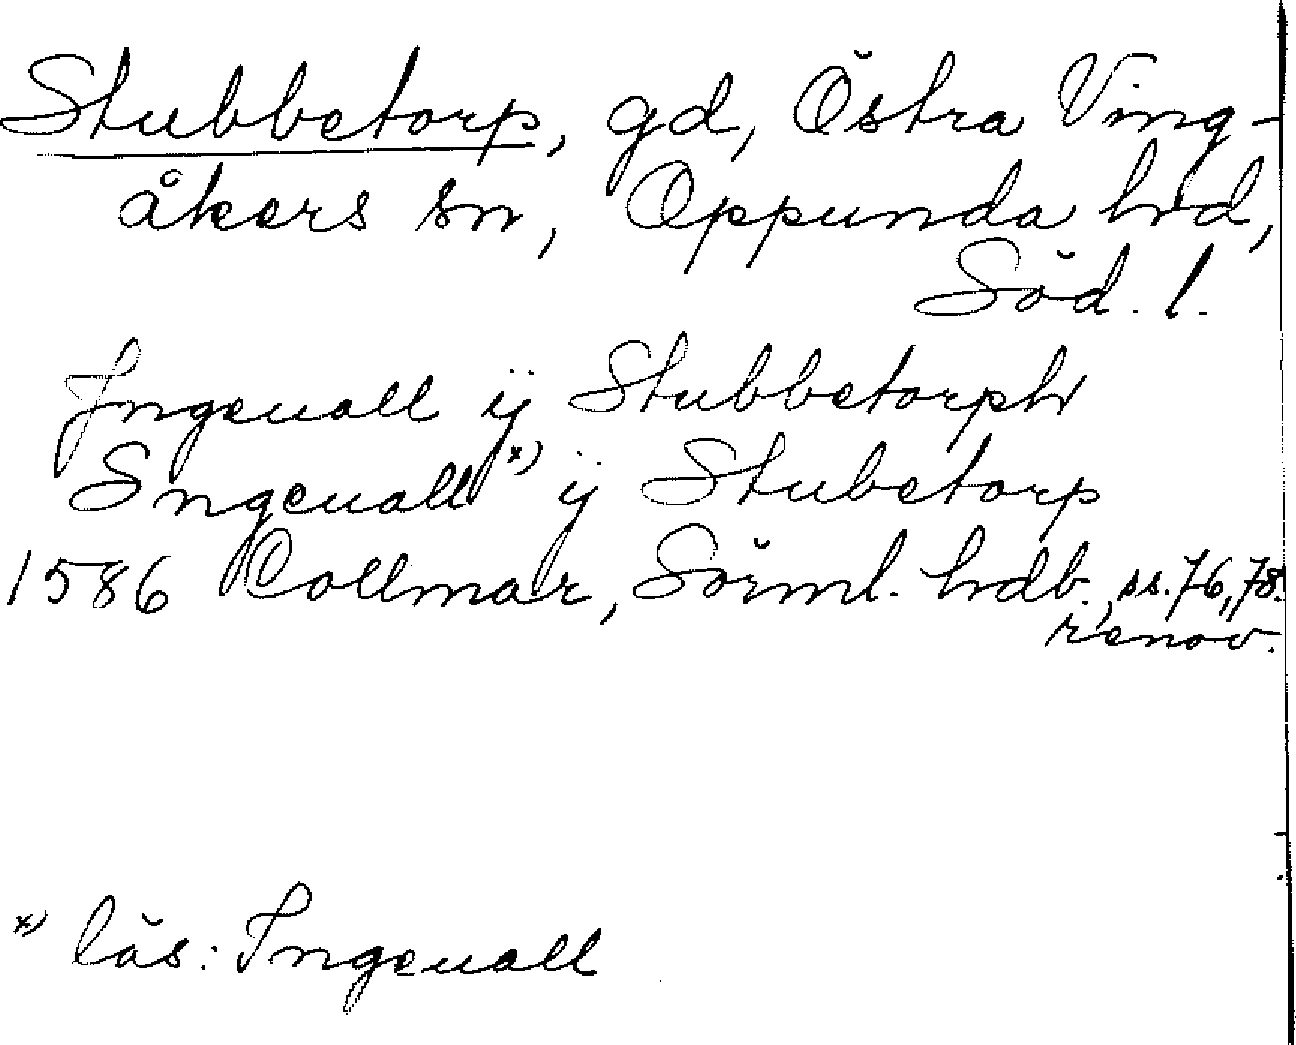 Stubbetorp, gd, Östra Ving-
åkers sn, Oppunda hrd,
Söd. l.
Ingeuall ÿ Stubbetorph
Sngeuall ˣ⁾ ÿ Stubetorp
1586 Collmar, Sörml. hdb., ss. 76, 78.
renov.
ˣ⁾ läs: Ingeuall